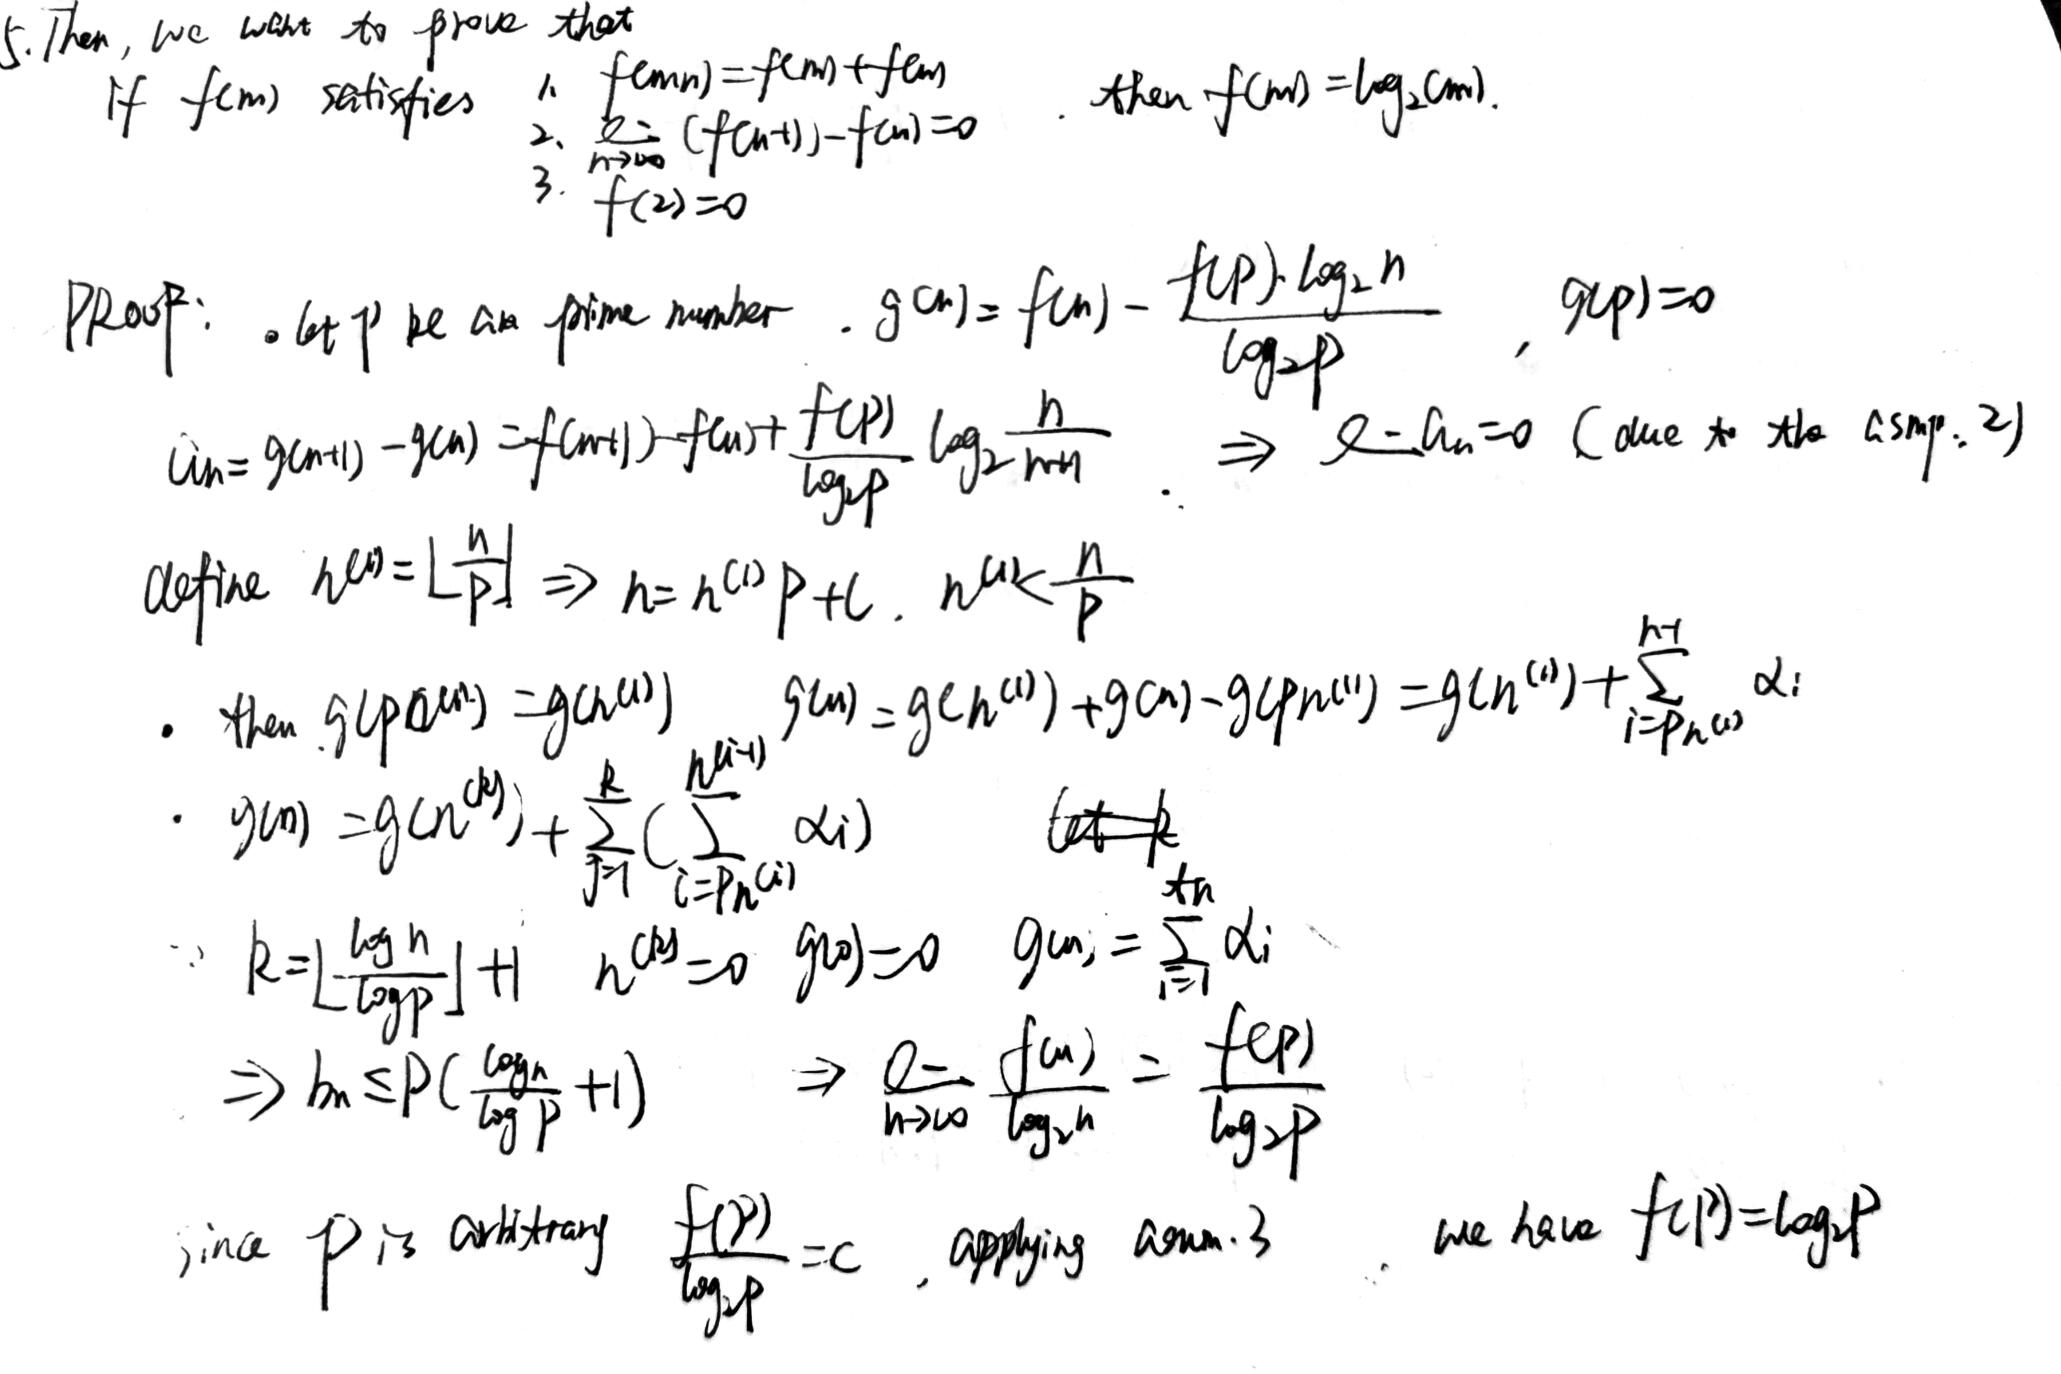 5. Then, we want to prove that
If f(m) satisfies 1. f(mn)=f(m)+f(n) . then f(m)=log₂(m).
2. lim n→∞ (f(n+1))-f(n)=0
3. f(2)=0
PROOF: . let p be an prime number . g(n)=f(n)- f(p).log₂n / log₂p , g(p)=0
αn= g(n+1)-g(n)=f(n+1)-f(n)+ f(p)/log₂p log₂ n/n+1 . ⇒ lim αn=0 (due to the asmp. 2)
define n⁽¹⁾=⌊n/p⌋ ⇒ n= n⁽¹⁾p+l . n⁽¹⁾< n/p
. then g(pn⁽¹⁾)=g(n⁽¹⁾) g(n)=g(n⁽¹⁾)+g(n)-g(pn⁽¹⁾)=g(n⁽¹⁾)+ ∑_{i=pn⁽¹⁾}^{n-1} αi
. g(n)=g(n⁽ᵏ⁾)+ ∑_{j=1}^{k} ( ∑_{i=pn⁽ⁱ⁾}^{n⁽ⁱ⁻¹⁾} αi) let k
k=⌊log n/log p⌋+1 n⁽ᵏ⁾=0 g(0)=0 g(n)= ∑_{i=1}^{tn} αi
⇒ bn ≤ p( log n/log p +1) ⇒ lim n→∞ f(n)/log₂n = f(p)/log₂p
since p is arbitrary f(p)/log₂p =c , applying asum. 3 we have f(p)=log₂p